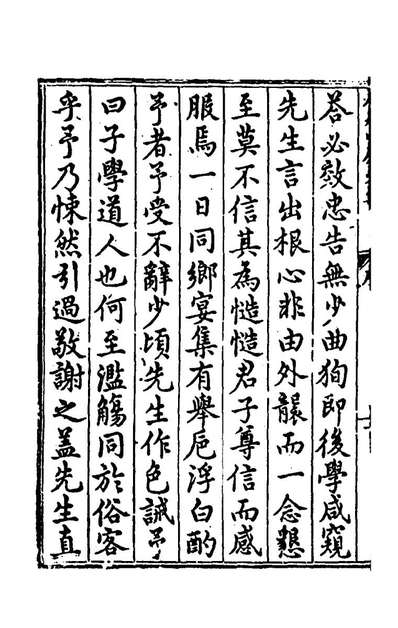 荅必效忠告無少曲狥即後學咸窺
先生言出根心非由外襮而一念懇
至莫不信其為慥慥君子尊信而感
服焉一日同鄉宴集有舉巵浮白酌
予者予受不辭少頃先生作色誡予
曰子學道人也何至濫觴同於俗客
乎予乃悚然引過敬謝之盖先生直